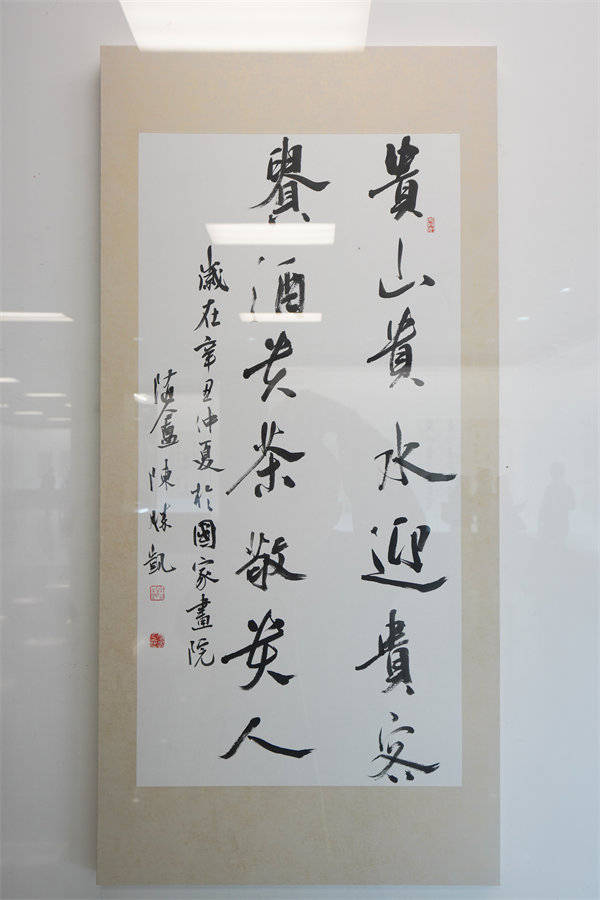 貴山貴水迎貴客
貴酒贵茶敬贵人
歲在辛丑仲夏於國家畫院
陳
凱